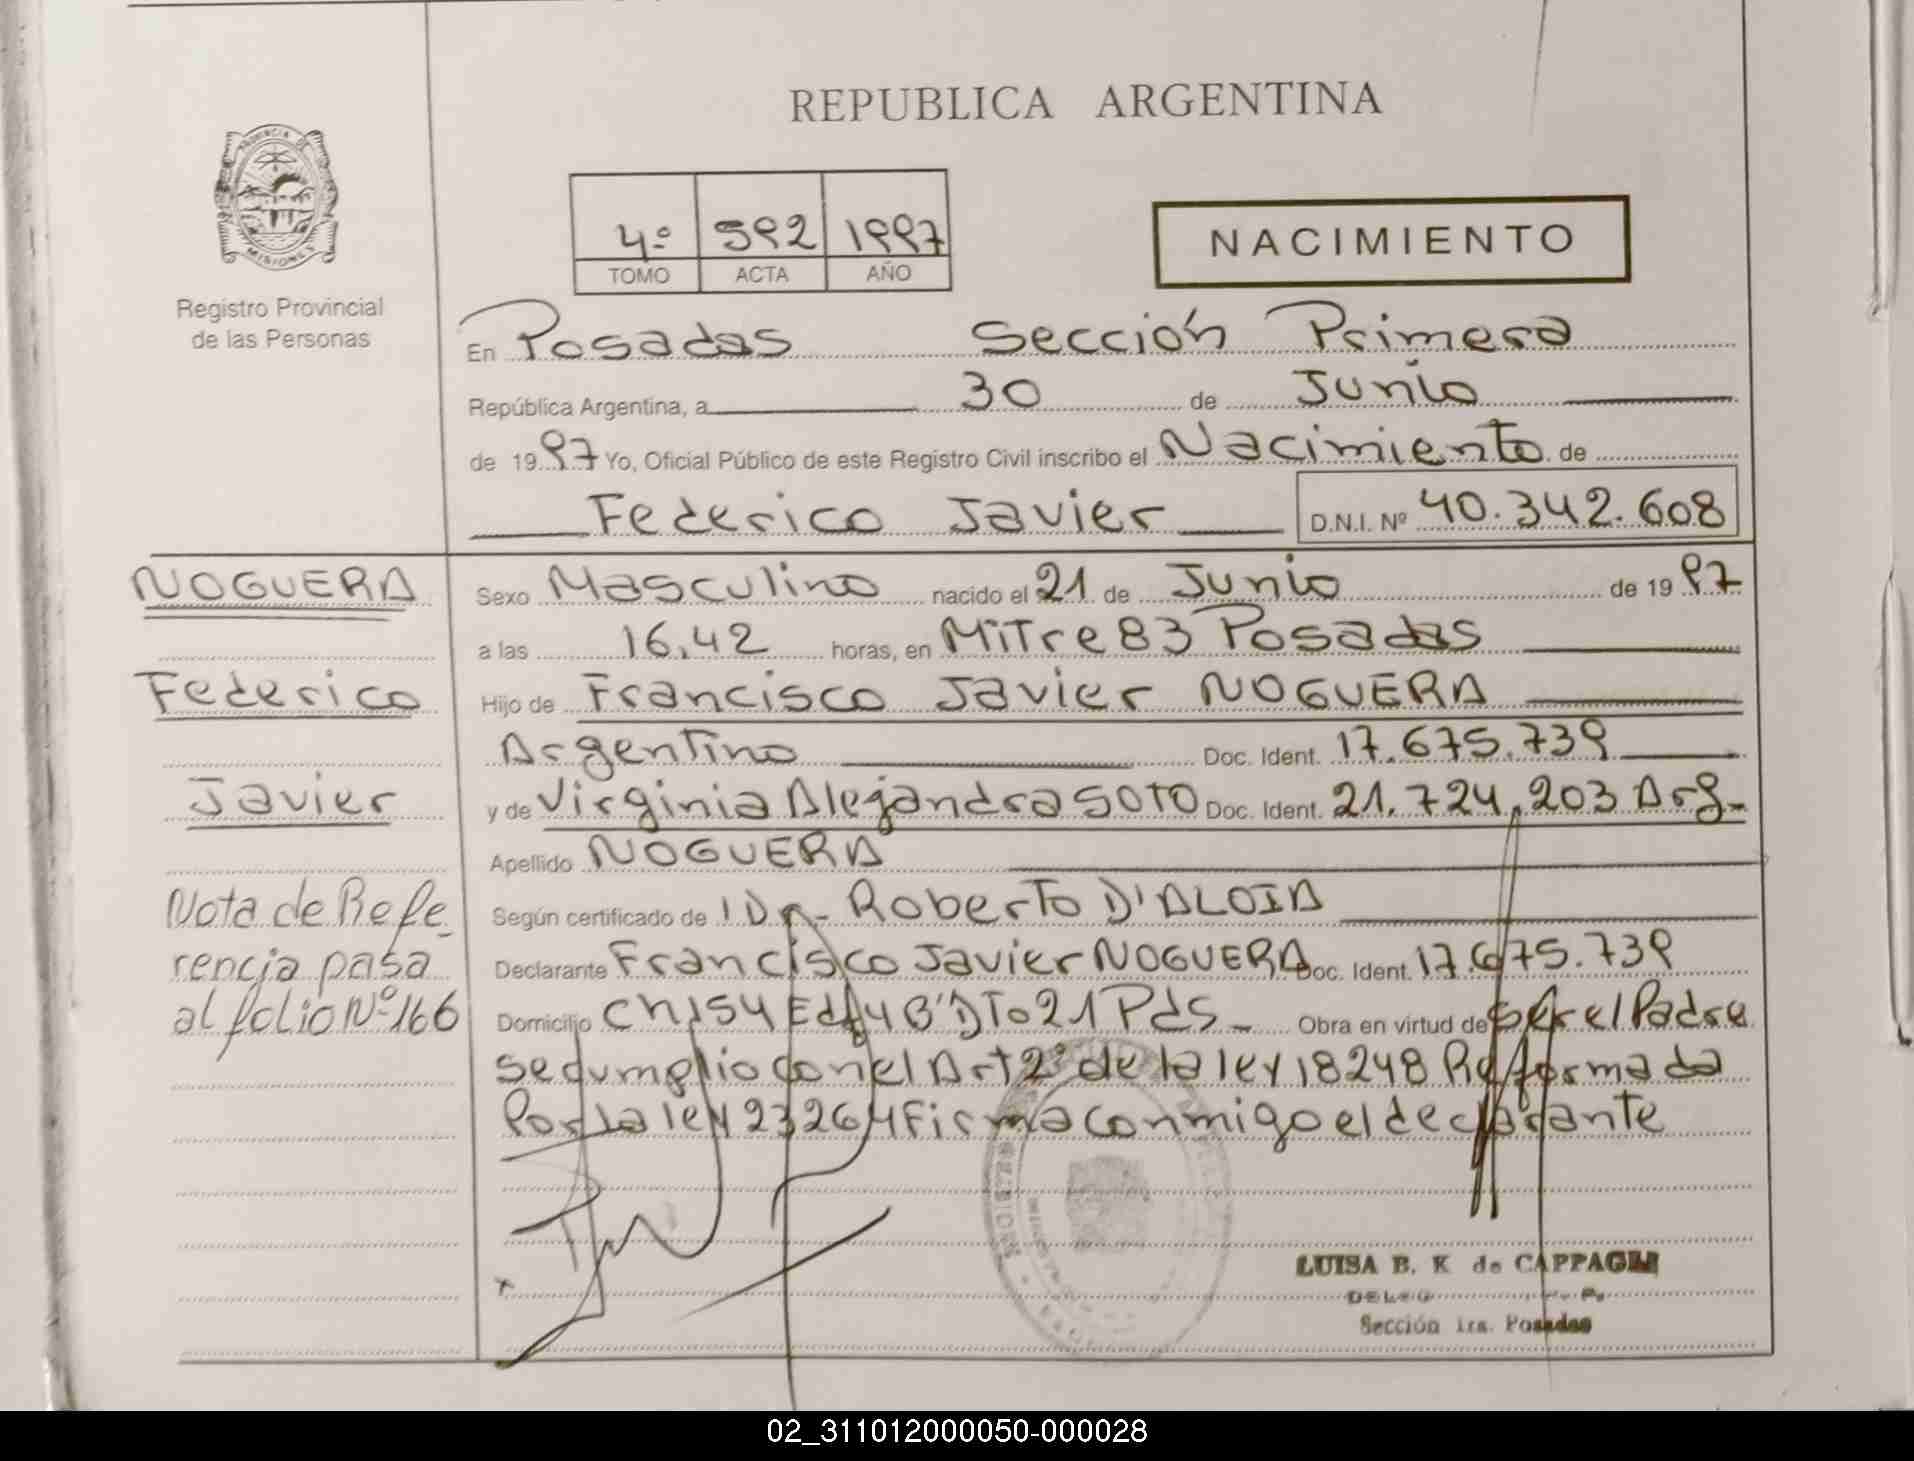 REPUBLICA ARGENTINA
PROVINCIA DE
MISIONES
Registro Provincial
de las Personas
4º 592 1997
TOMO ACTA AÑO
NACIMIENTO
En Posadas Sección Primera
República Argentina, a 30 de Junio
de 1997 Yo, Oficial Público de este Registro Civil inscribo el Nacimiento de
Federico Javier D.N.I. Nº 40.342.608
NOGUERA
Federico
Javier
Nota de Refe-
rencia pasa
al folio Nº 166
Sexo Masculino nacido el 21 de Junio de 1997
a las 16,42 horas, en Mitre 83 Posadas
Hijo de Francisco Javier NOGUERA
Argentino Doc. Ident. 17.675.739
y de Virginia Alejandra SOTO Doc. Ident. 21.724.203 Arg-
Apellido NOGUERA
Según certificado de Dr. Roberto D'ALOIA
Declarante Francisco Javier NOGUERA Doc. Ident. 17.675.739
Domicilio Ch 154 Edf 4 B' DTo 21 Pds- Obra en virtud de ser el Padre
se cumplio con el Art 2º de la ley 18248 Reformada
Por la ley 23264 Firma conmigo el declarante
x
LUISA B. K de CAPPAGLI
Sección 1ra. Posadas
02_311012000050-000028